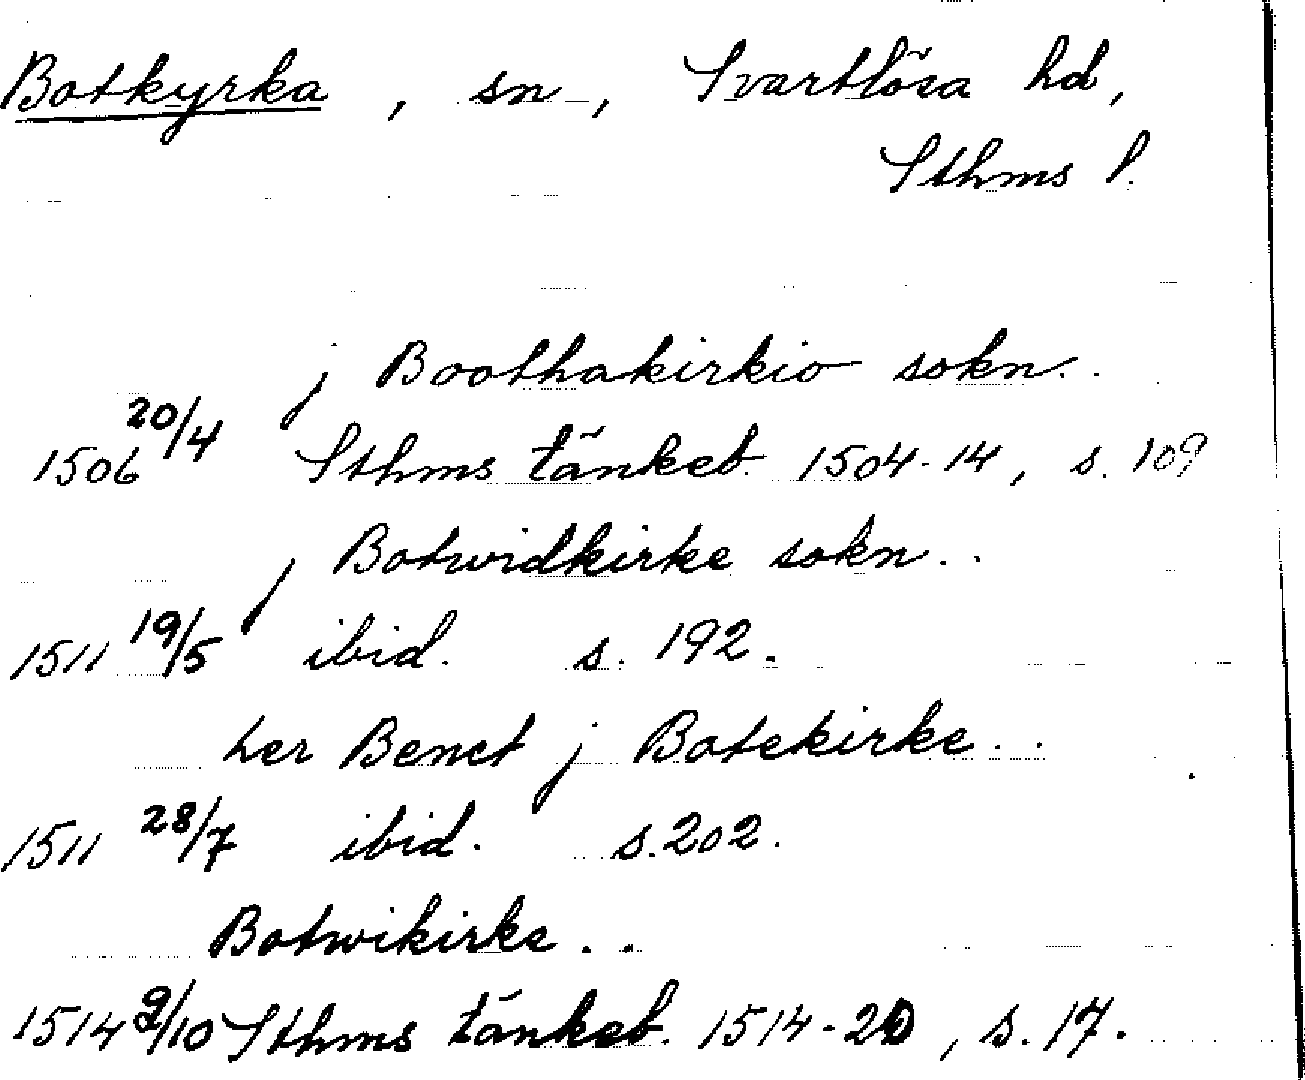 Botkyrka, sn, Svartlösa hd,
Sthms l.
j Boothakirkio sokn..
1506 20/4 Sthms tänkeb. 1504-14, s. 109
j Botwidkirke sokn..
1511 19/5 ibid. s. 192.
her Benct j Botekirke..
1511 28/7 ibid. s. 202.
Botwikirke..
1514 9/10 Sthms tänkeb. 1514-20, s. 17.